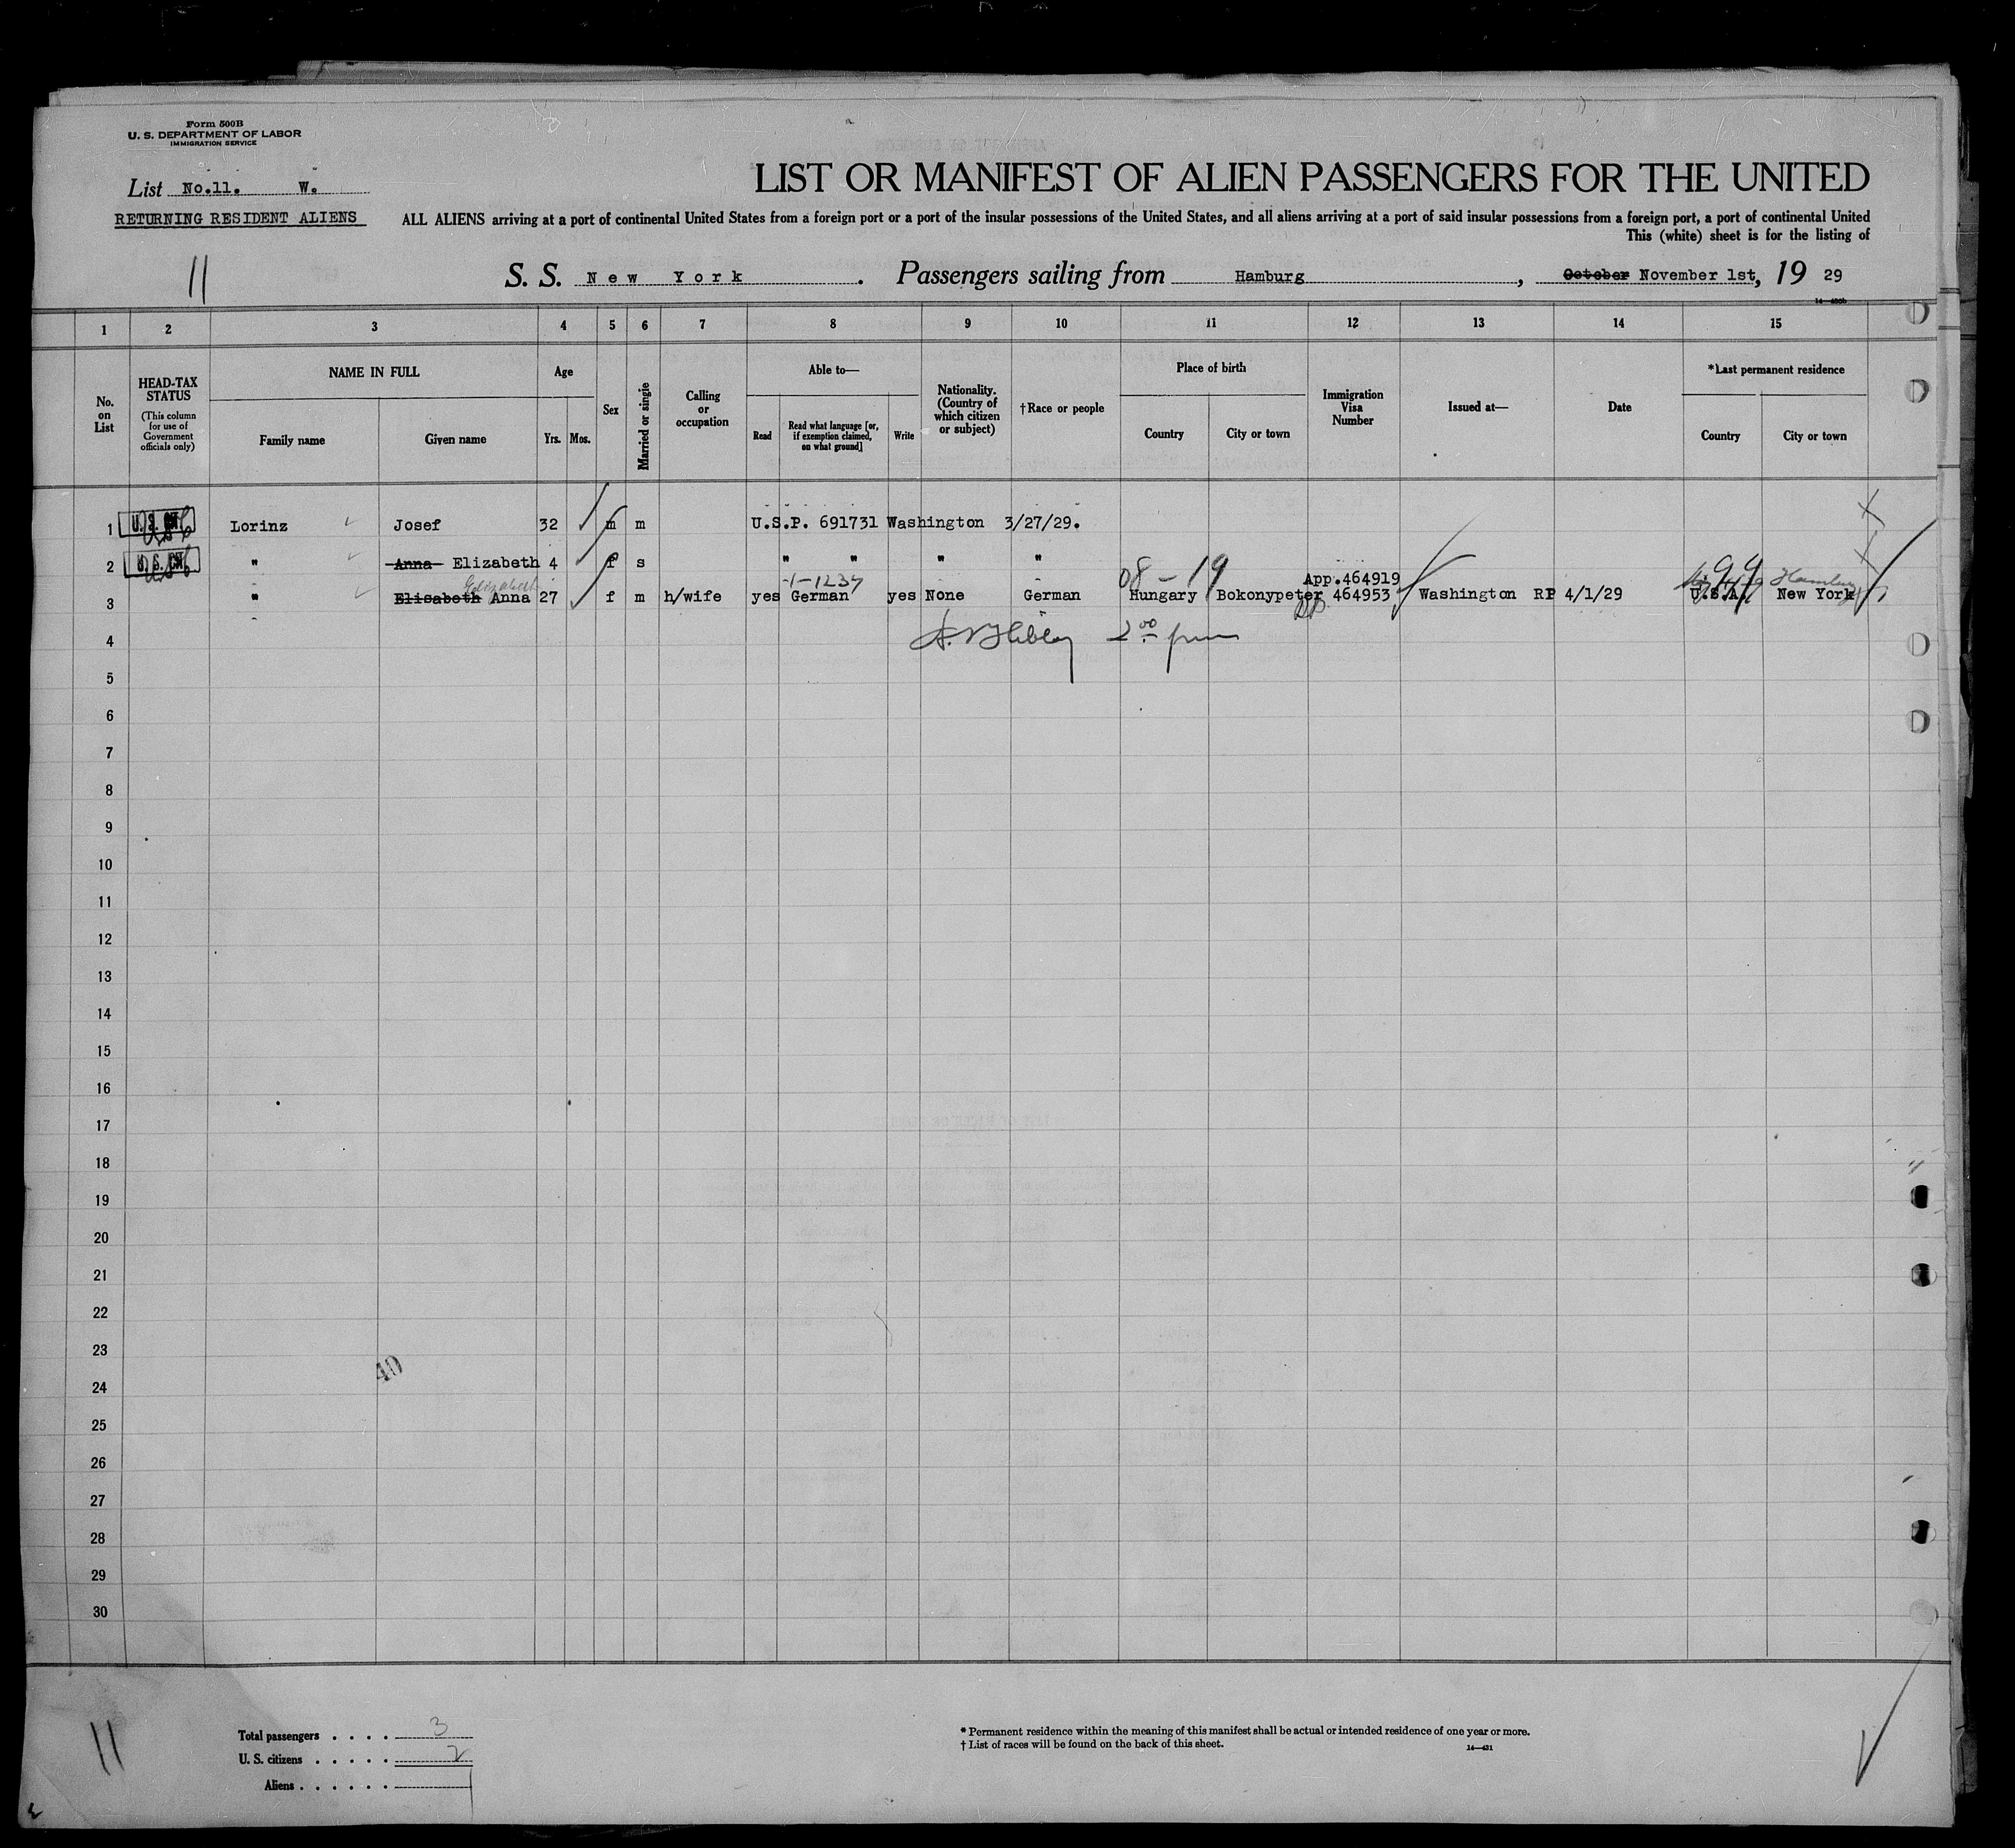 Form 500B
U. S. DEPARTMENT OF LABOR
IMMIGRATION SERVICE
List No.11. W.
RETURNING RESIDENT ALIENS
LIST OR MANIFEST OF ALIEN PASSENGERS FOR THE UNITED
ALL ALIENS arriving at a port of continental United States from a foreign port or a port of the insular possessions of the United States, and all aliens arriving at a port of said insular possessions from a foreign port, a port of continental United
This (white) sheet is for the listing of
11
S. S. New York. Passengers sailing from Hamburg, October November 1st, 19 29
1 2 3 4 5 6 7 8 9 10 11 12 13 14 15
No. on List
HEAD-TAX STATUS
(This column for use of Government officials only)
NAME IN FULL
Family name
Given name
Age
Yrs.
Mos.
Sex
Married or single
Calling or occupation
Able to—
Read
Read what language [or, if exemption claimed, on what ground]
Write
Nationality. (Country of which citizen or subject)
†Race or people
Place of birth
Country
City or town
Immigration Visa Number
Issued at—
Date
*Last permanent residence
Country
City or town
1 Lorinz Josef 32 m m U.S.P. 691731 Washington 3/27/29.
2 " Anna Elizabeth 4 f s " " " "
-1-1237
08 - 19
App.464919
99
Hamburg
Elizabeth
3 " Elisabeth Anna 27 f m h/wife yes German yes None German Hungary Bokonypeter 464953 Washington RP 4/1/29 U.S.A. New York
4
5
6
7
8
9
10
11
12
13
14
15
16
17
18
19
20
21
22
23
40
24
25
26
27
28
29
30
11
Total passengers . . . . 3
U. S. citizens . . . . . 2
Aliens . . . . . .
* Permanent residence within the meaning of this manifest shall be actual or intended residence of one year or more.
† List of races will be found on the back of this sheet.
14—431